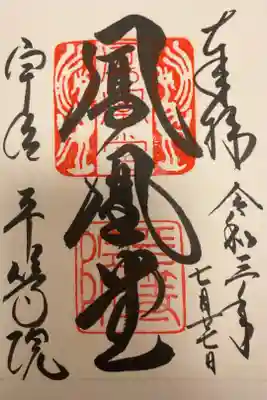 奉拝
令和三年
七月廿七日
鳳凰堂
宇治 平等院